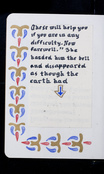 Chess will help you
if you are in any
difficulty. Now
farewell." She
handed him the bell
and disappeared
as though the
earth had